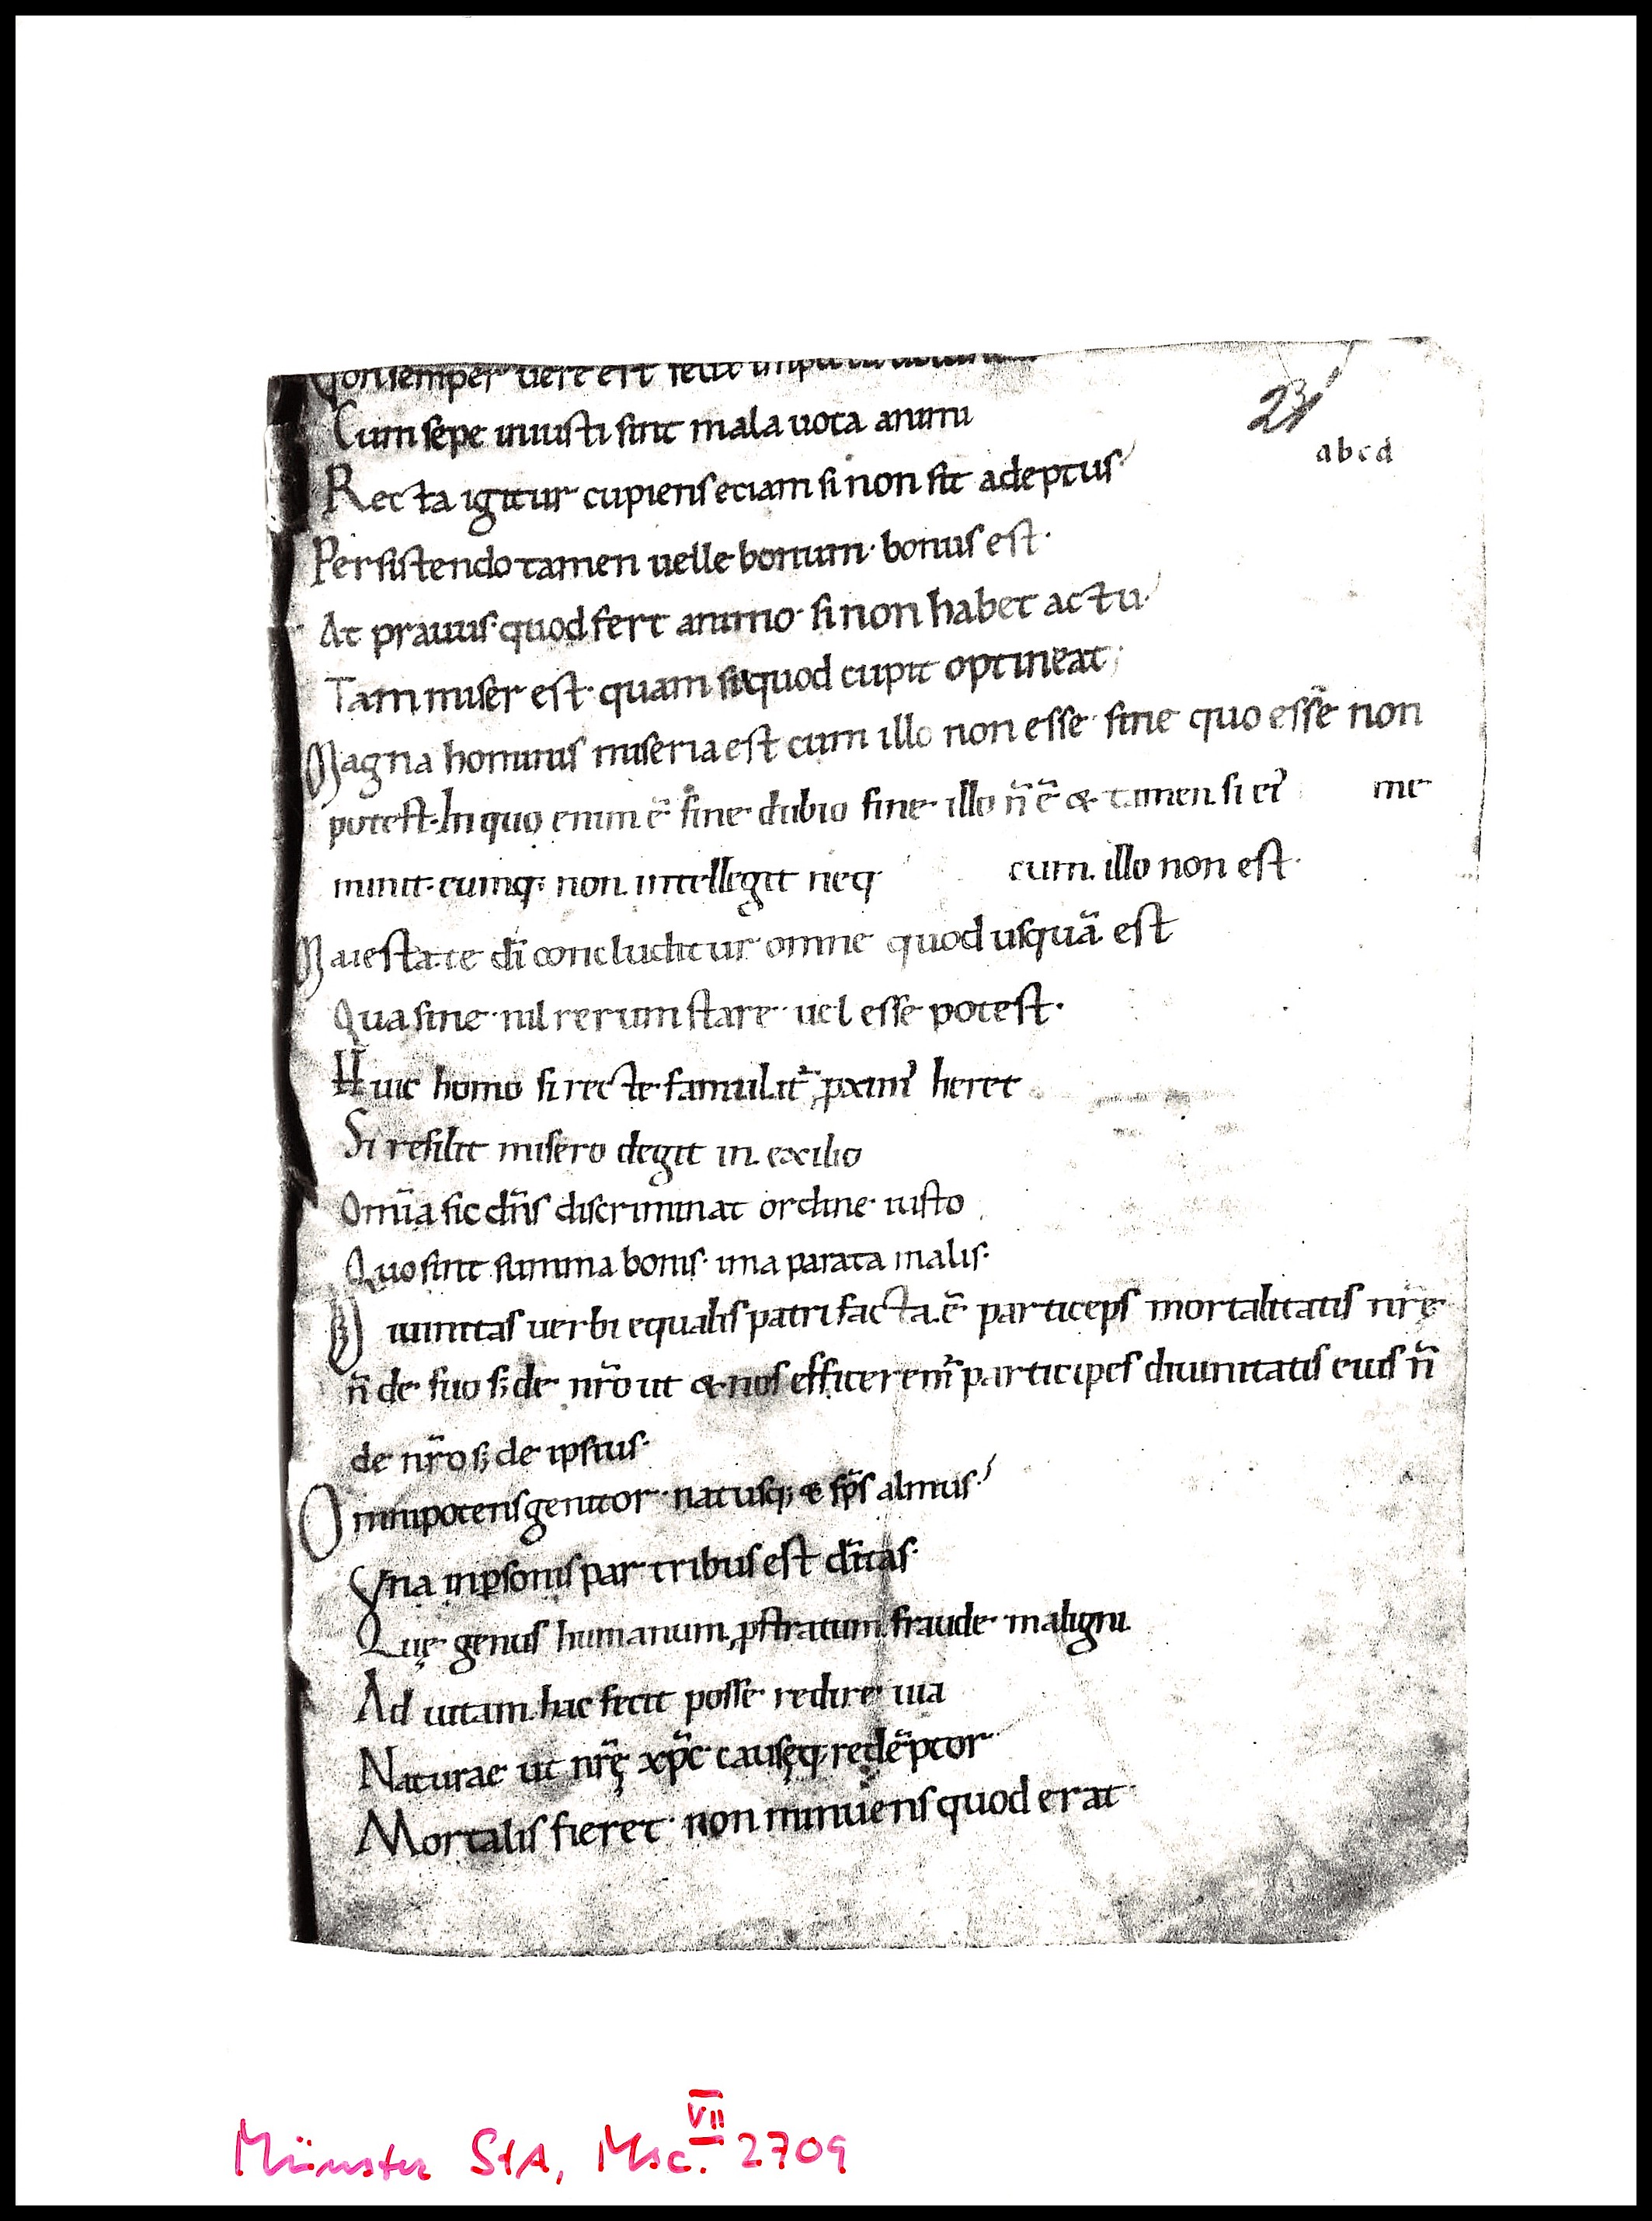 Non semper uere est felix
Cum sepe iniusti sint mala uota animi
23
abcd
Recta igitur cupiens eciam si non sit adeptus
Persistendo tamen uelle bonum· bonus est·
At prauus· quod fert animo· si non habet actu·
Tam miser est· quam si quod cupit optineat;
Magna hominis miseria est cum illo non esse· sine quo esse̅ non
potest· In quo enim e̅· sine dubio sine illo n̅ e̅ & tamen si ei᾽ me
minit· eumq; non intellegit neq cum illo non est·
Maiestate di̅ concluditur omne quod usqua̅ est
Qua sine nil rerum stare uel esse potest·
Huic homo si recte famulat᷑ ꝓxim᾽ heret
Si resilit misero degit in exilio
Omi̅a sic dn̅s discriminat ordine iusto
Quo sint summa bonis· ima parata malis·
Diuinitas uerbi equalis patri facta· e̅ particeps mortalitatis nr̅ę
n̅ de suo s; de nr̅o ut & nos efficerem᾽ participes diuinitatis eius n̅
de nr̅o s; de ipsius·
Omnipotens genitor natusq; & sp̅s almus·
Vna in ꝑsonis par tribus est di̅tas·
Quę genus humanum ꝓstratum fraude maligni
Ad uitam hac fecit posse redire uia
Naturae ut nr̅ę xp̅c causęq; rede̅ptor
Mortalis fieret non minuens quod erat
Münster StA, Msc. VII 2709